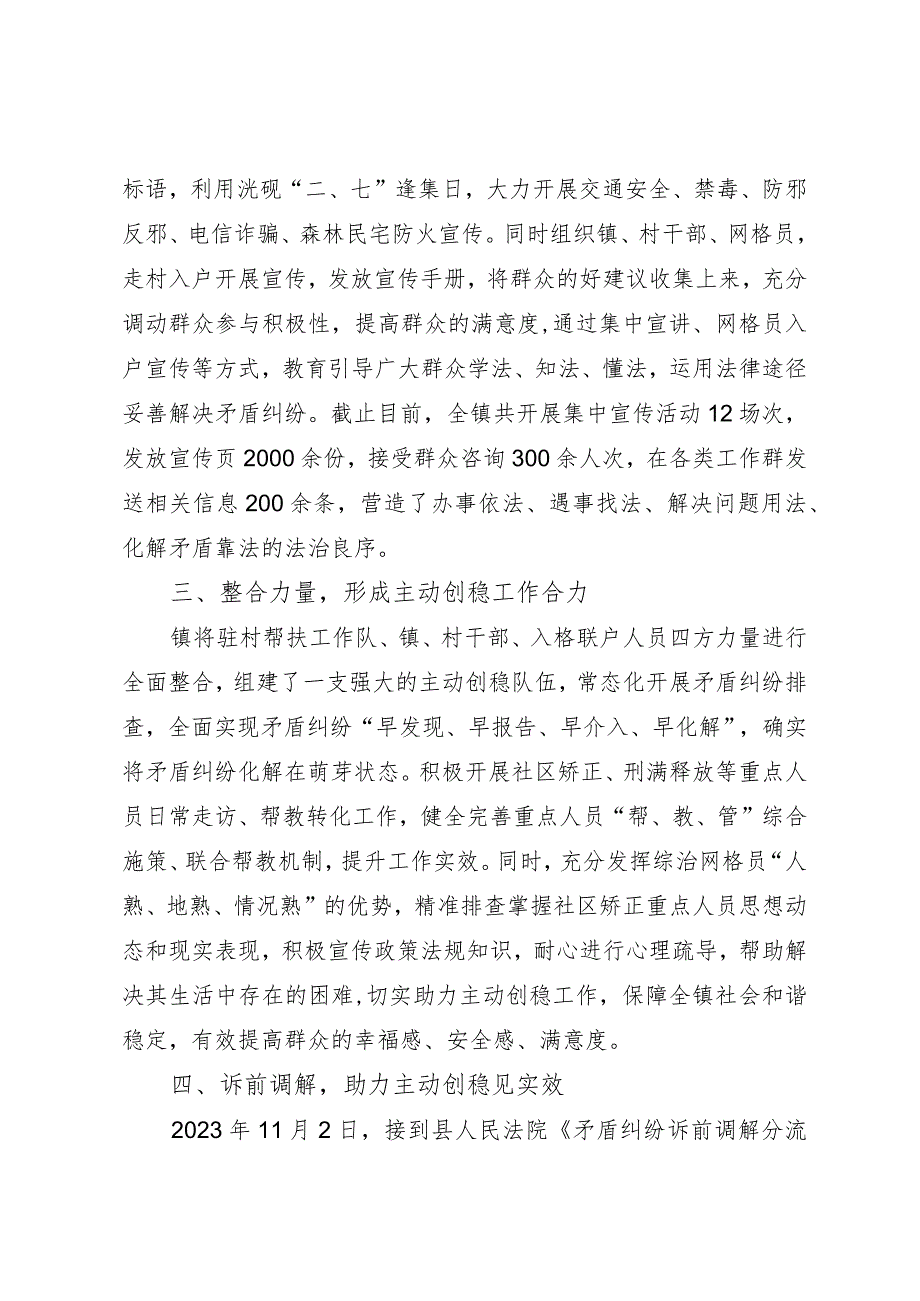 标语，利用洸砚“二、七”逢集日，大力开展交通安全、禁毒、防邪
反邪、电信诈骗、森林民宅防火宣传。同时组织镇、村干部、网格员，
走村入户开展宣传，发放宣传手册，将群众的好建议收集上来，充分
调动群众参与积极性，提高群众的满意度,通过集中宣讲、网格员入
户宣传等方式，教育引导广大群众学法、知法、懂法，运用法律途径
妥善解决矛盾纠纷。截止目前，全镇共开展集中宣传活动 12 场次，
发放宣传页 2000 余份，接受群众咨询 300 余人次，在各类工作群发
送相关信息 200 余条，营造了办事依法、遇事找法、解决问题用法、
化解矛盾靠法的法治良序。
三、整合力量，形成主动创稳工作合力
镇将驻村帮扶工作队、镇、村干部、入格联户人员四方力量进行
全面整合，组建了一支强大的主动创稳队伍，常态化开展矛盾纠纷排
查，全面实现矛盾纠纷“早发现、早报告、早介入、早化解”，确实
将矛盾纠纷化解在萌芽状态。积极开展社区矫正、刑满释放等重点人
员日常走访、帮教转化工作，健全完善重点人员“帮、教、管”综合
施策、联合帮教机制，提升工作实效。同时，充分发挥综治网格员“人
熟、地熟、情况熟”的优势，精准排查掌握社区矫正重点人员思想动
态和现实表现，积极宣传政策法规知识，耐心进行心理疏导，帮助解
决其生活中存在的困难,切实助力主动创稳工作，保障全镇社会和谐
稳定，有效提高群众的幸福感、安全感、满意度。
四、诉前调解，助力主动创稳见实效
2023 年 11 月 2 日，接到县人民法院《矛盾纠纷诉前调解分流